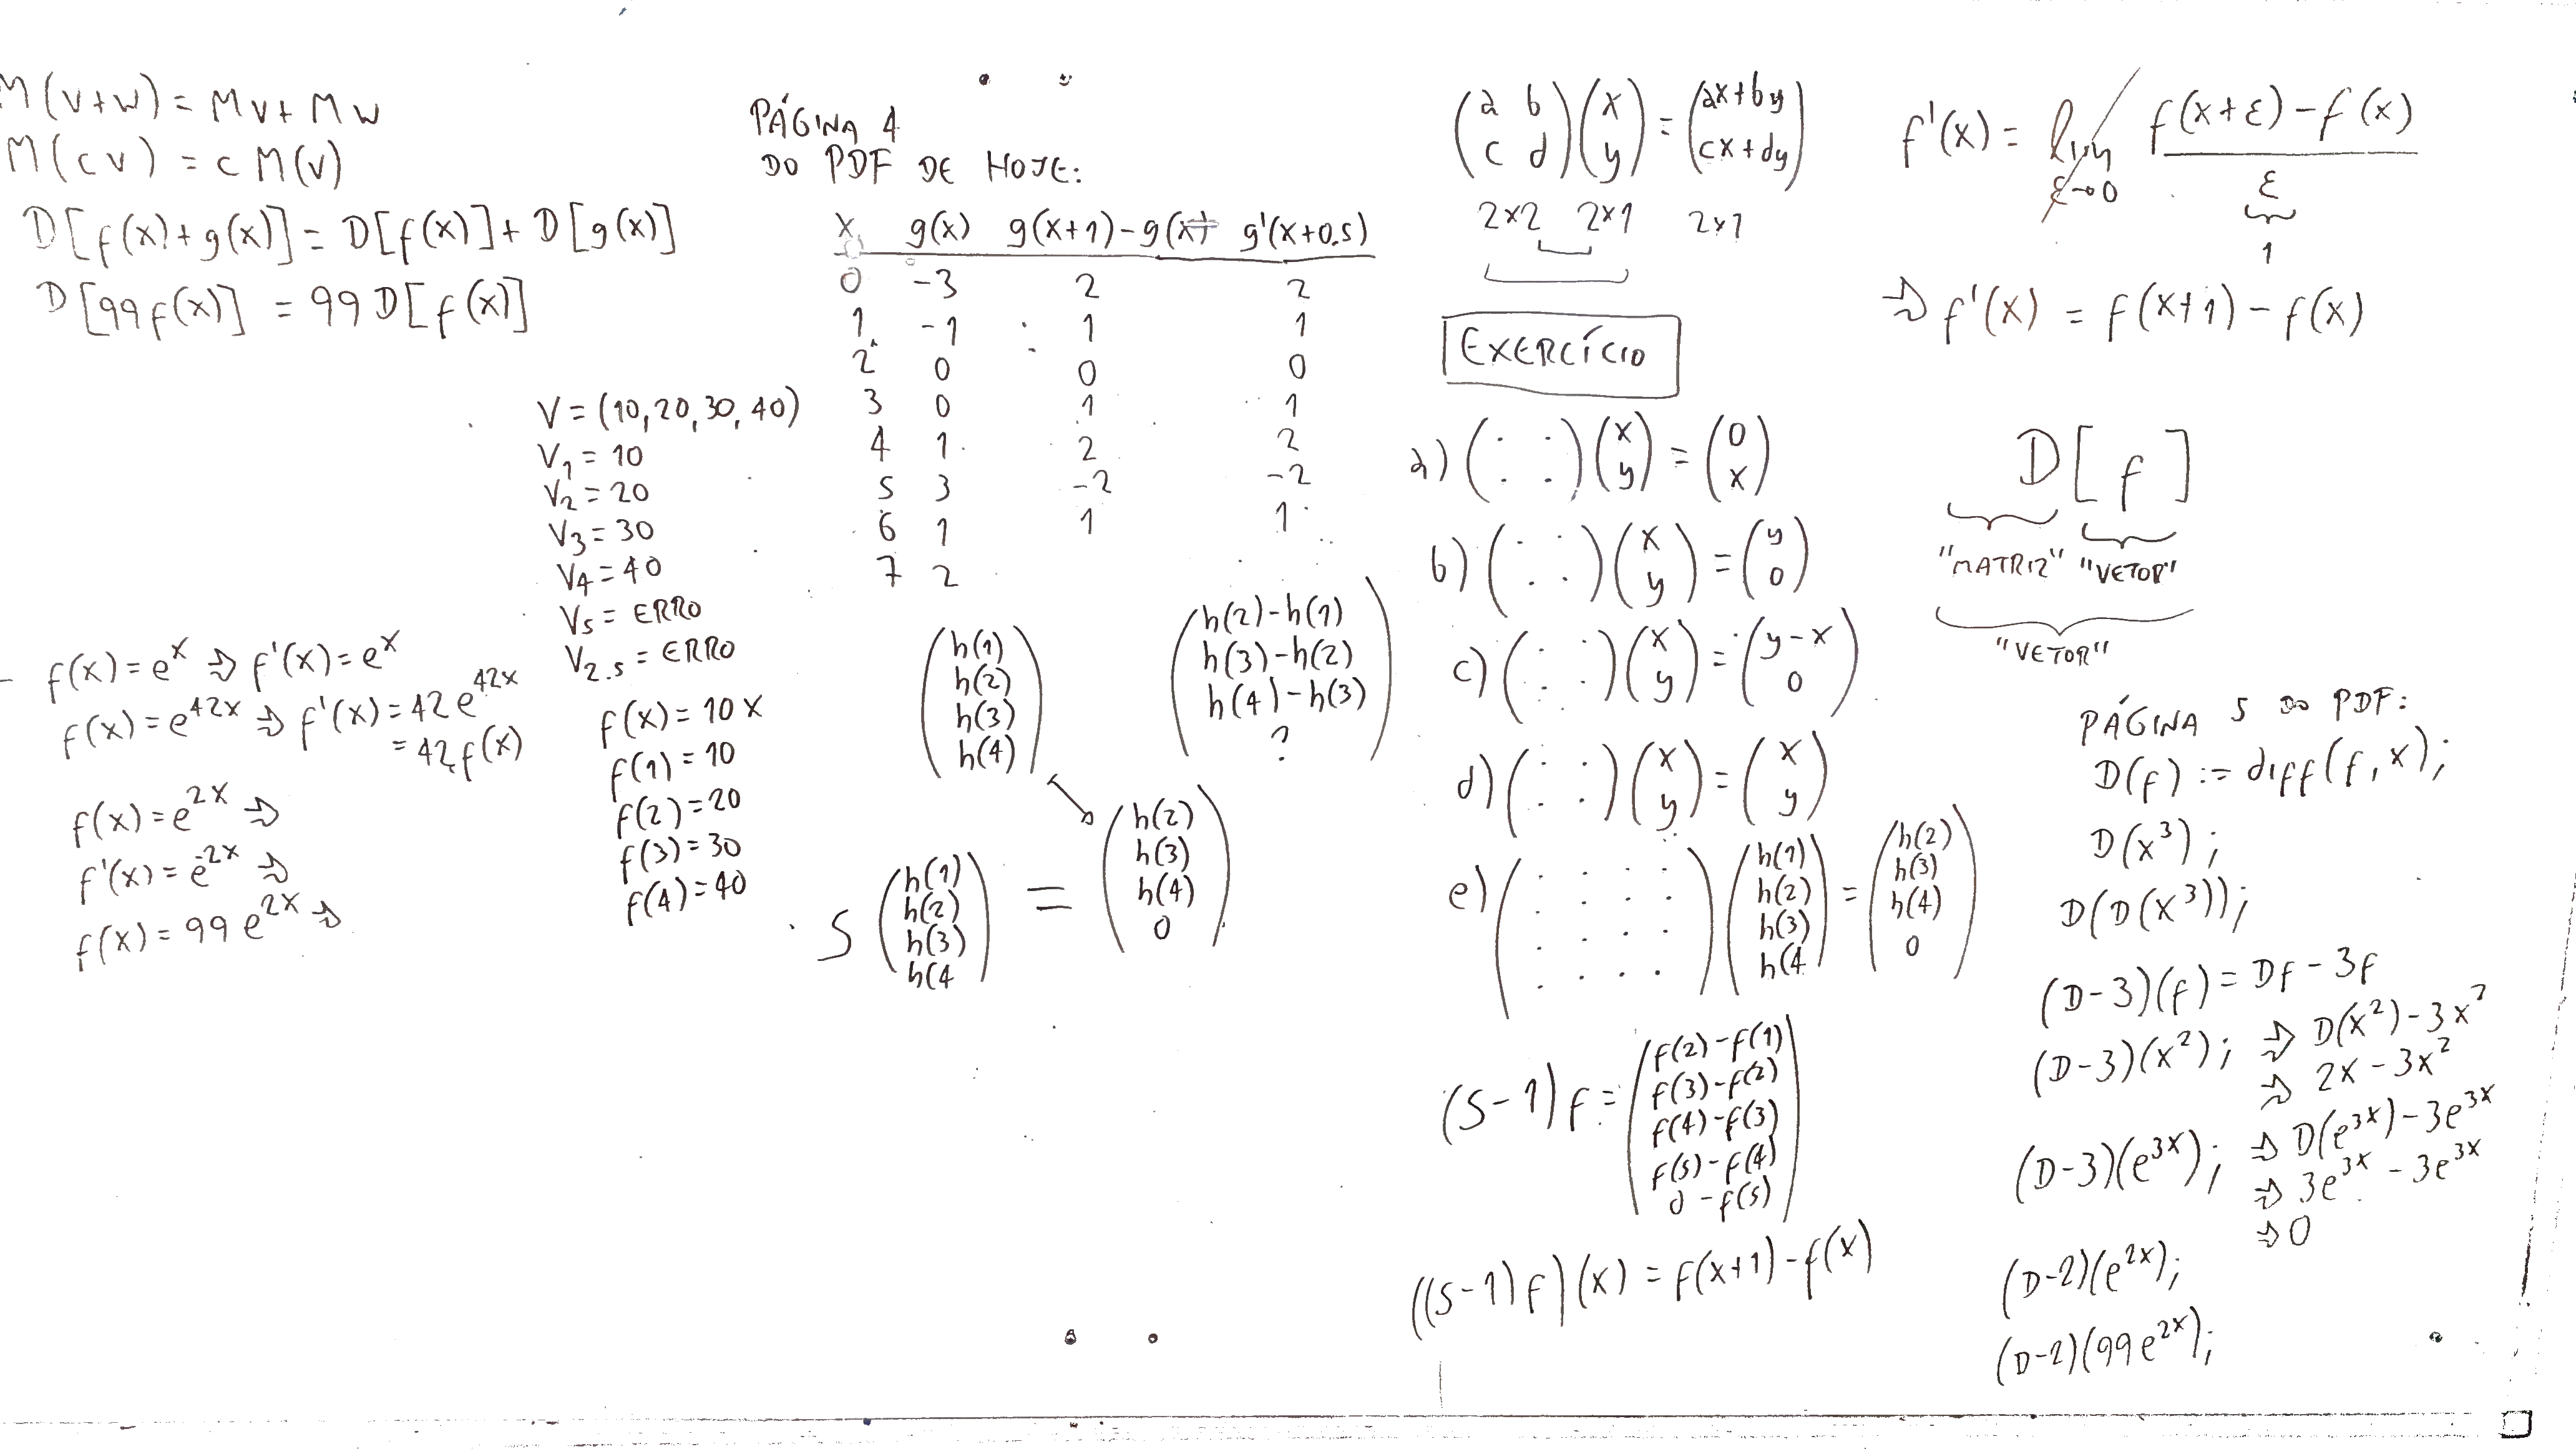 M(v+w) = Mv + Mw
M(cv) = c M(v)
D[f(x)+g(x)] = D[f(x)] + D[g(x)]
D[99f(x)] = 99 D[f(x)]
f(x) = e^x ⇒ f'(x) = e^x
f(x) = e^{42x} ⇒ f'(x) = 42 e^{42x}
= 42 f(x)
f(x) = e^{2x} ⇒
f'(x) = e^{-2x} ⇒
f(x) = 99 e^{2x} ⇒
V = (10, 20, 30, 40)
V_1 = 10
V_2 = 20
V_3 = 30
V_4 = 40
V_5 = ERRO
V_{2.5} = ERRO
f(x) = 10x
f(1) = 10
f(2) = 20
f(3) = 30
f(4) = 40
PÁGINA 4
DO PDF DE HOJE:
x g(x) g(x+1)-g(x) g'(x+0.5)
0 -3 2 2
1 -1 1 1
2 0 0 0
3 0 1 1
4 1 2 2
5 3 -2 -2
6 1 1 1
7 2
(h(1)
h(2)
h(3)
h(4))
(h(2)-h(1)
h(3)-h(2)
h(4)-h(3)
?)
S (h(1) h(2) h(3) h(4) = (h(2) h(3) h(4) 0)
(a b) (x) = (ax+by)
(c d) (y) (cx+dy)
2×2 2×1 2×1
EXERCÍCIO
a) (. . . .) (x y) = (0 x)
b) (. . . .) (x y) = (y 0)
c) (. . . .) (x y) = (y-x 0)
d) (. . . .) (x y) = (x y)
e) (. . . . . . . . . . . . . . . .) (h(1) h(2) h(3) h(4) = (h(2) h(3) h(4) 0)
(S-1) f = (f(2)-f(1)
f(3)-f(2)
f(4)-f(3)
f(5)-f(4)
0-f(5))
((S-1)f)(x) = f(x+1)-f(x)
f'(x) = lim_{ε→0} (f(x+ε)-f(x))/ε
1
⇒ f'(x) = f(x+1)-f(x)
D[f]
"MATRIZ" "VETOR"
"VETOR"
PÁGINA 5 DO PDF:
D(f) := diff(f,x);
D(x^3);
D(D(x^3));
(D-3)(f) = Df - 3f
(D-3)(x^2); ⇒ D(x^2)-3x^2
⇒ 2x-3x^2
(D-3)(e^{3x}); ⇒ D(e^{3x})-3e^{3x}
⇒ 3e^{3x} - 3e^{3x}
⇒ 0
(D-2)(e^{2x});
(D-2)(99e^{2x});